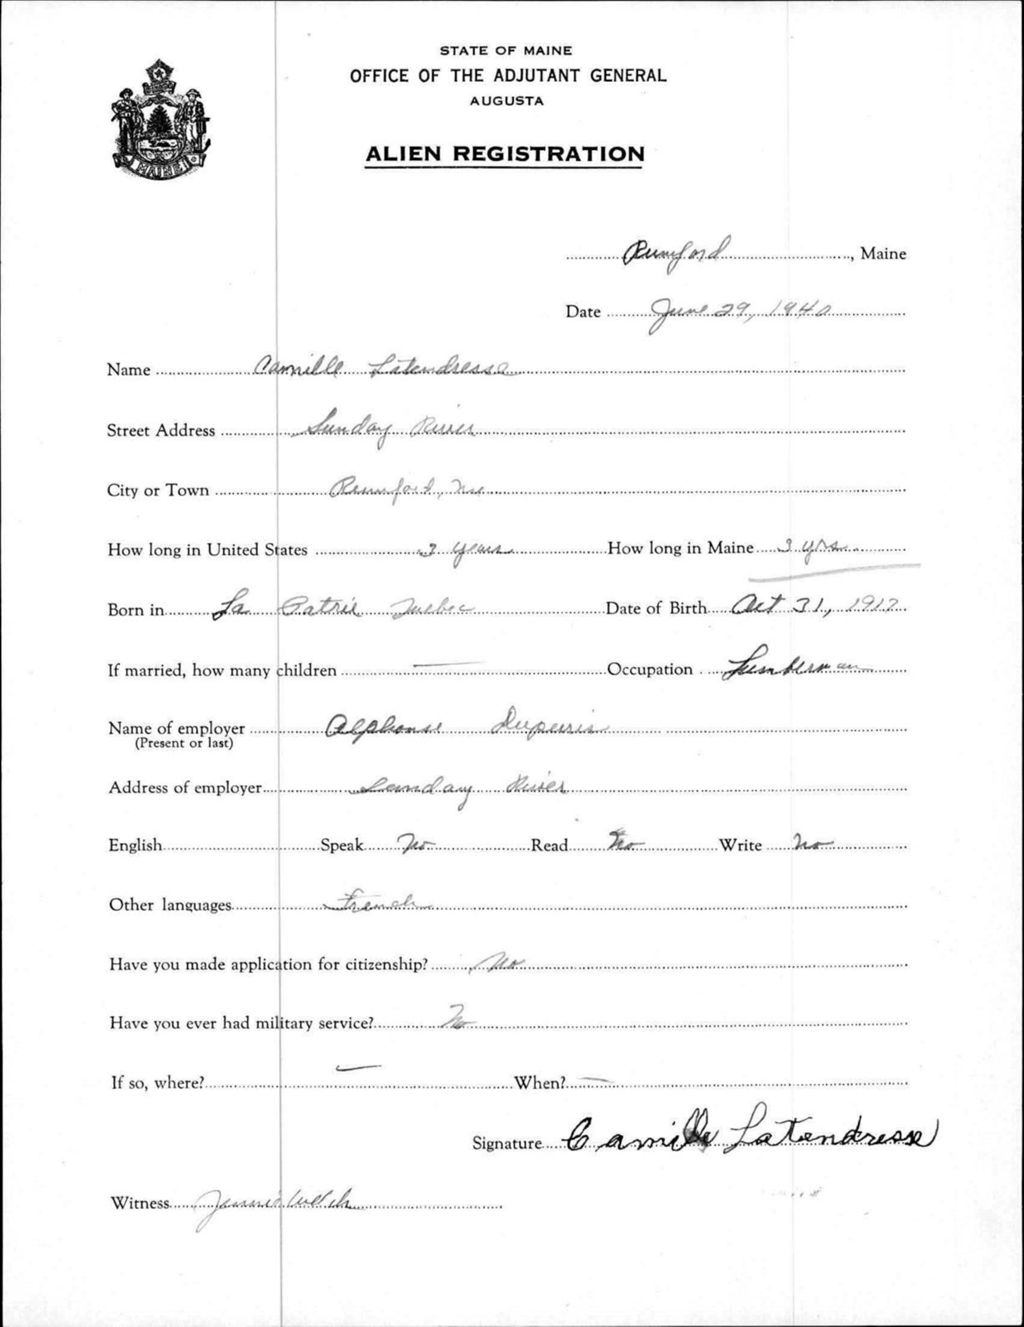 STATE OF MAINE
OFFICE OF THE ADJUTANT GENERAL
AUGUSTA
ALIEN REGISTRATION
MAINE
Rumford, Maine
Date June 29, 1940
Name Camille Latendresse
Street Address Sunday River
City or Town Rumford, Me
How long in United States 3 years How long in Maine 3 yrs
Born in La Patrie Quebec Date of Birth Oct 31, 1917
If married, how many children — Occupation Lumberman
Name of employer Alphonse Dupuis
(Present or last)
Address of employer Sunday River
English Speak No Read No Write No
Other languages French
Have you made application for citizenship? No
Have you ever had military service? No
If so, where? — When? —
Signature Camille Latendresse
Witness Jennie Welch